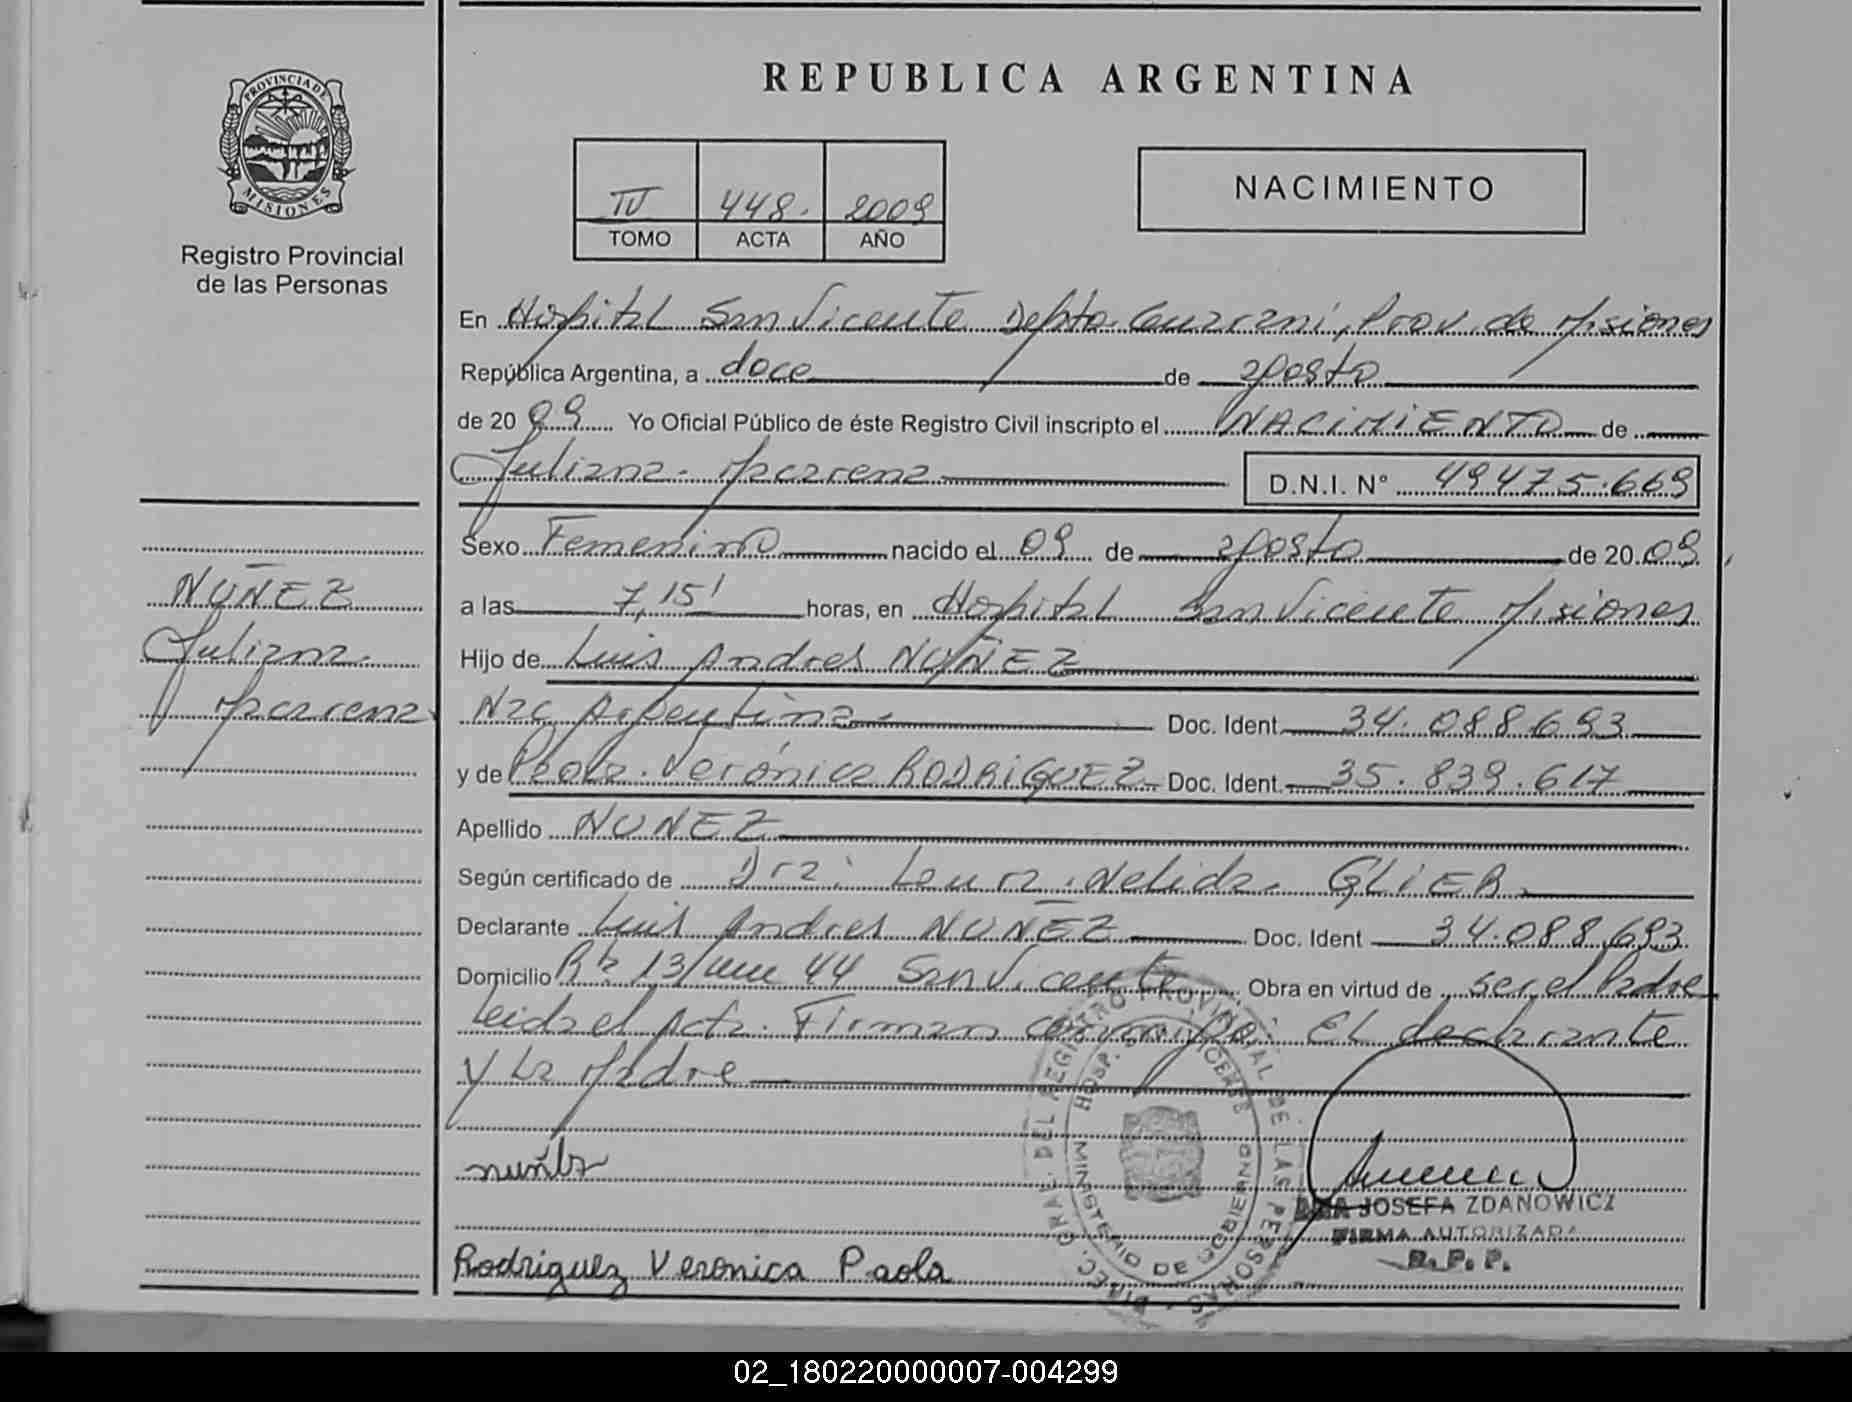 REPUBLICA ARGENTINA
PROVINCIA DE
MISIONES
Registro Provincial
de las Personas
IV 448. 2009
TOMO ACTA AÑO
NACIMIENTO
En Hospital San Vicente Depto. Guaraní, Prov. de Misiones
República Argentina, a doce de agosto
de 20 09 Yo Oficial Público de éste Registro Civil inscripto el NACIMIENTO de
Juliana Macarena D.N.I. N° 49475.669
Sexo Femenino nacido el 09 de agosto de 20 09
a las 7,15' horas, en Hospital San Vicente Misiones
Hijo de Luis Andres NUÑEZ
Nac Argentina Doc. Ident. 34.088.693
y de Paola Verónica RODRIGUEZ Doc. Ident. 35.839.617
Apellido NUÑEZ
Según certificado de Dra. Laura Nelida GLIER
Declarante Luis Andres NUÑEZ Doc. Ident 34.088.693
Domicilio 13 44 San Vicente Obra en virtud de ser el Padre
Leida el Acta. Firman conmigo: El declarante
y La Madre
NUÑEZ
Juliana
Macarena
nuñez
Rodriguez Veronica Paola
DIREC. GRAL. DEL REGISTRO PROVINCIAL DE LAS PERSONAS
HOSP. VICENTE
MINISTERIO DE GOBIERNO
ANA JOSEFA ZDANOWICZ
FIRMA AUTORIZADA
R.P.P.
02_180220000007-004299